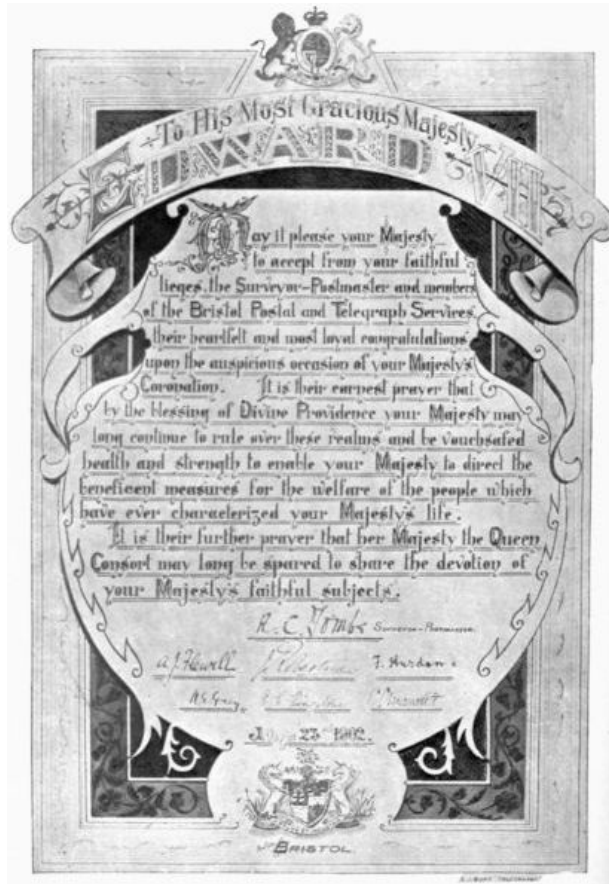 To His Most Gracious Majesty
EDWARD VII
May it please your Majesty
to accept from your faithful
lieges, the Surveyor-Postmaster and members
of the Bristol Postal and Telegraph Services
their heartfelt and most loyal congratulations
upon the auspicious occasion of your Majesty's
Coronation. It is their earnest prayer that
by the blessing of Divine Providence your Majesty may
long continue to rule over these realms and be vouchsafed
health and strength to enable your Majesty to direct the
beneficent measures for the welfare of the people which
have ever characterized your Majesty's life.
It is their further prayer that her Majesty the Queen
Consort may long be spared to share the devotion of
your Majesty's faithful subjects.
R. C. Tombs Surveyor-Postmaster.
A. J. Flewell
23 1902.
BRISTOL.